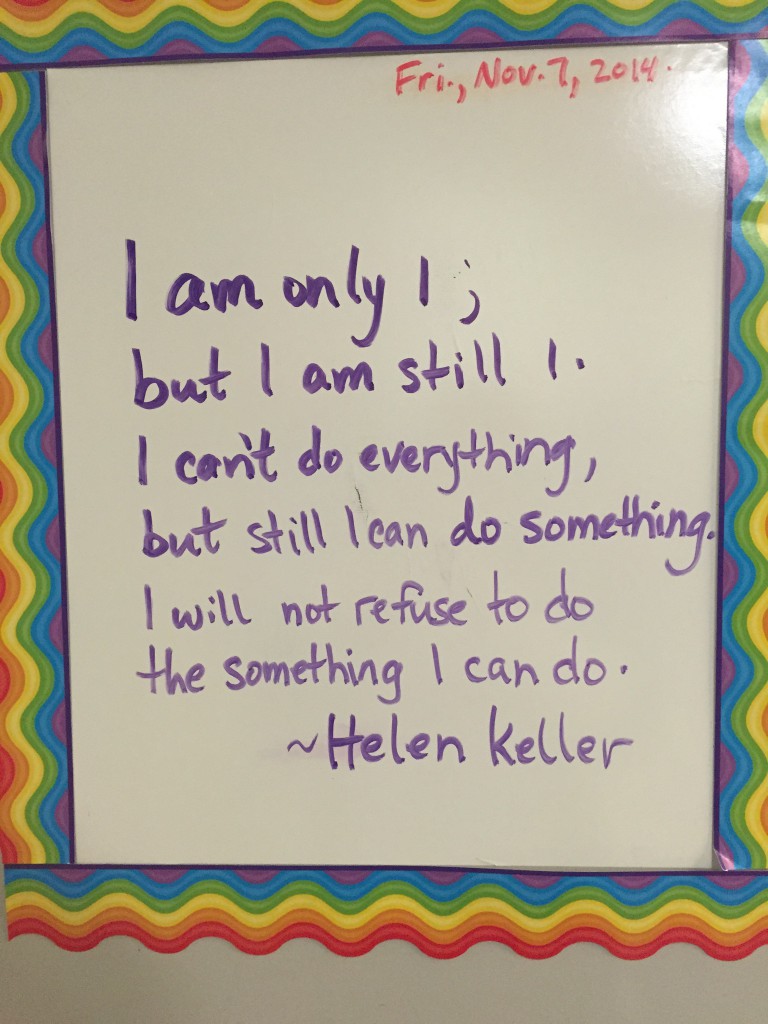 Fri., Nov. 7, 2014.
I am only 1 ;
but I am still 1.
I can't do everything,
but still I can do something.
I will not refuse to do
the something I can do.
~Helen Keller